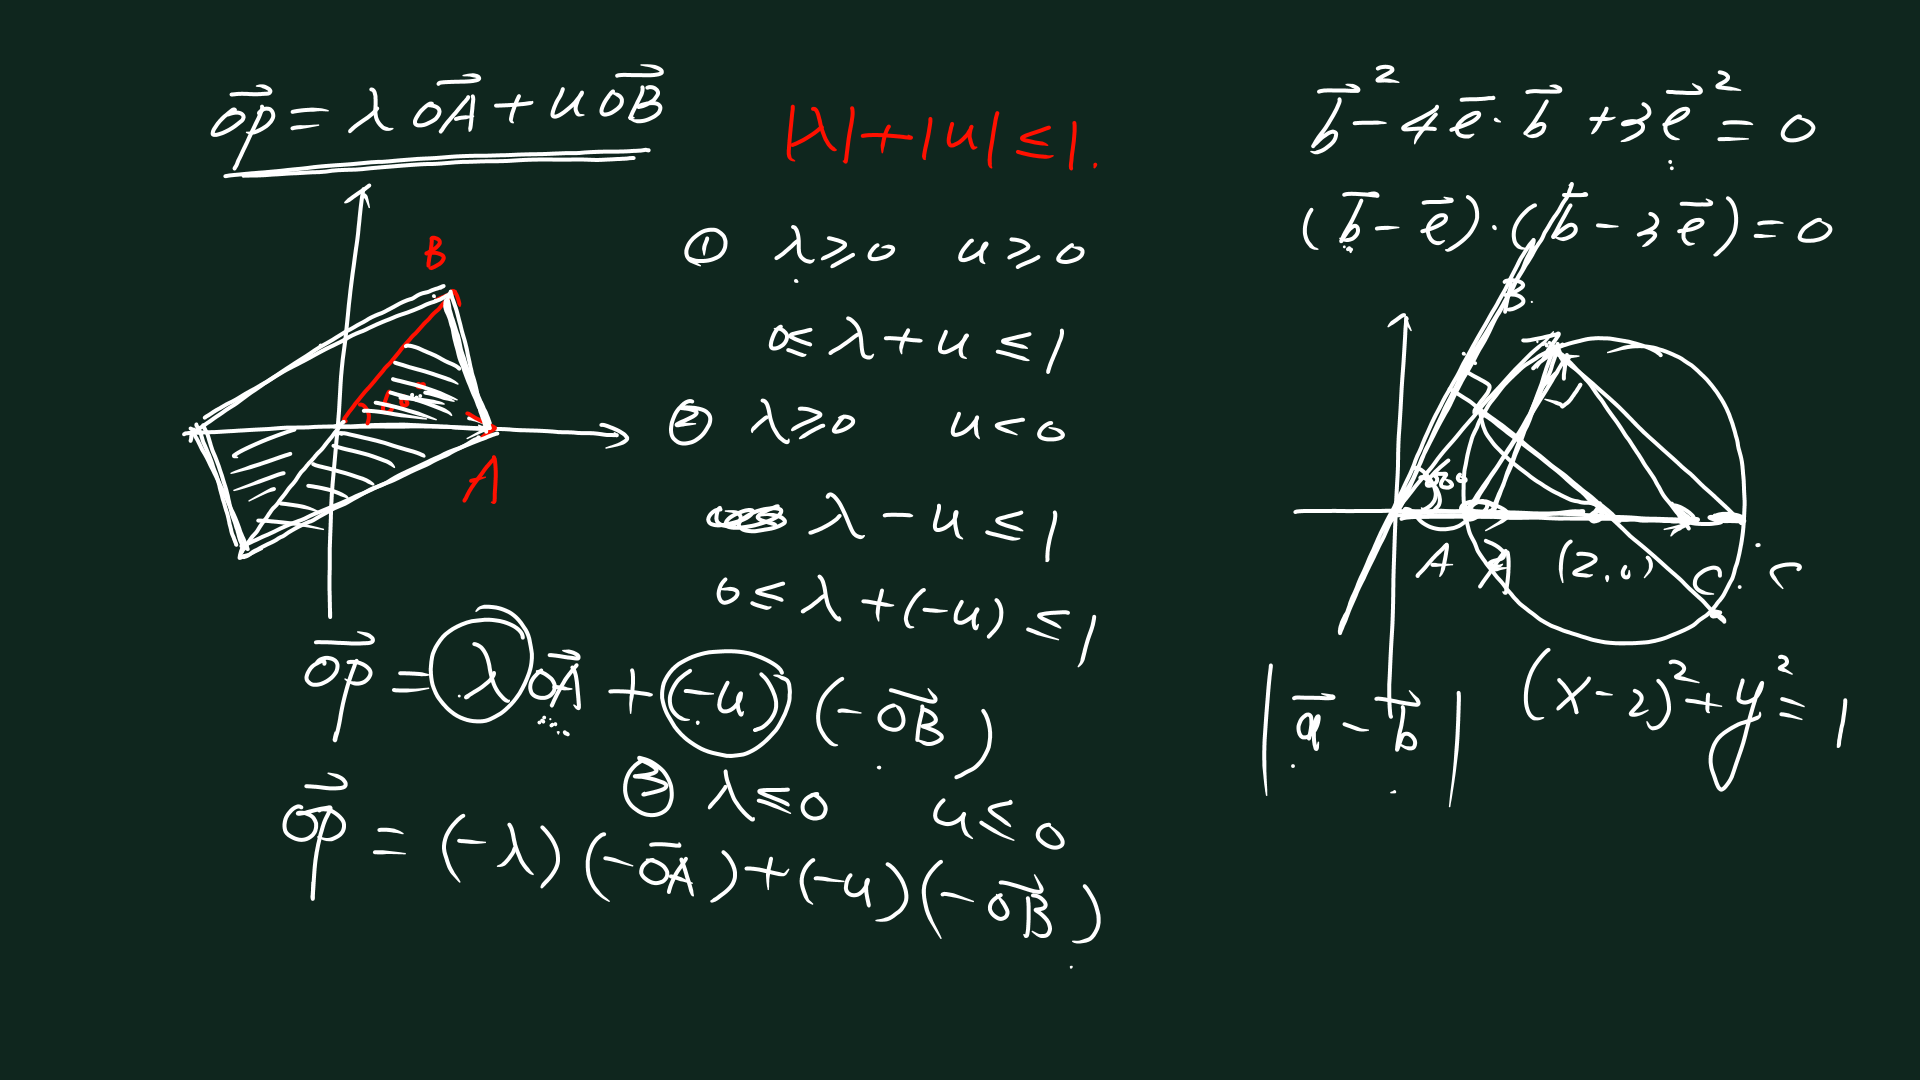 $\overrightarrow{OP} = \lambda \overrightarrow{OA} + u \overrightarrow{OB}$
$|\lambda| + |u| \leq 1.$
B
A
① $\lambda \geq 0$  $u \geq 0$
$0 \leq \lambda + u \leq 1$
② $\lambda \geq 0$  $u < 0$
$\lambda - u \leq 1$
$0 \leq \lambda + (-u) \leq 1$
$\overrightarrow{OP} = \lambda \overrightarrow{OA} + (-u)(-\overrightarrow{OB})$
③ $\lambda \leq 0$  $u \leq 0$
$\overrightarrow{OP} = (-\lambda)(-\overrightarrow{OA}) + (-u)(-\overrightarrow{OB})$
$\vec{b}^2 - 4\vec{e} \cdot \vec{b} + 3\vec{e}^2 = 0$
$(\vec{b} - \vec{e}) \cdot (\vec{b} - 3\vec{e}) = 0$
B
60°
A  (2,0)  C  C
$(x-2)^2 + y^2 = 1$
$|\vec{a} - \vec{b}|$